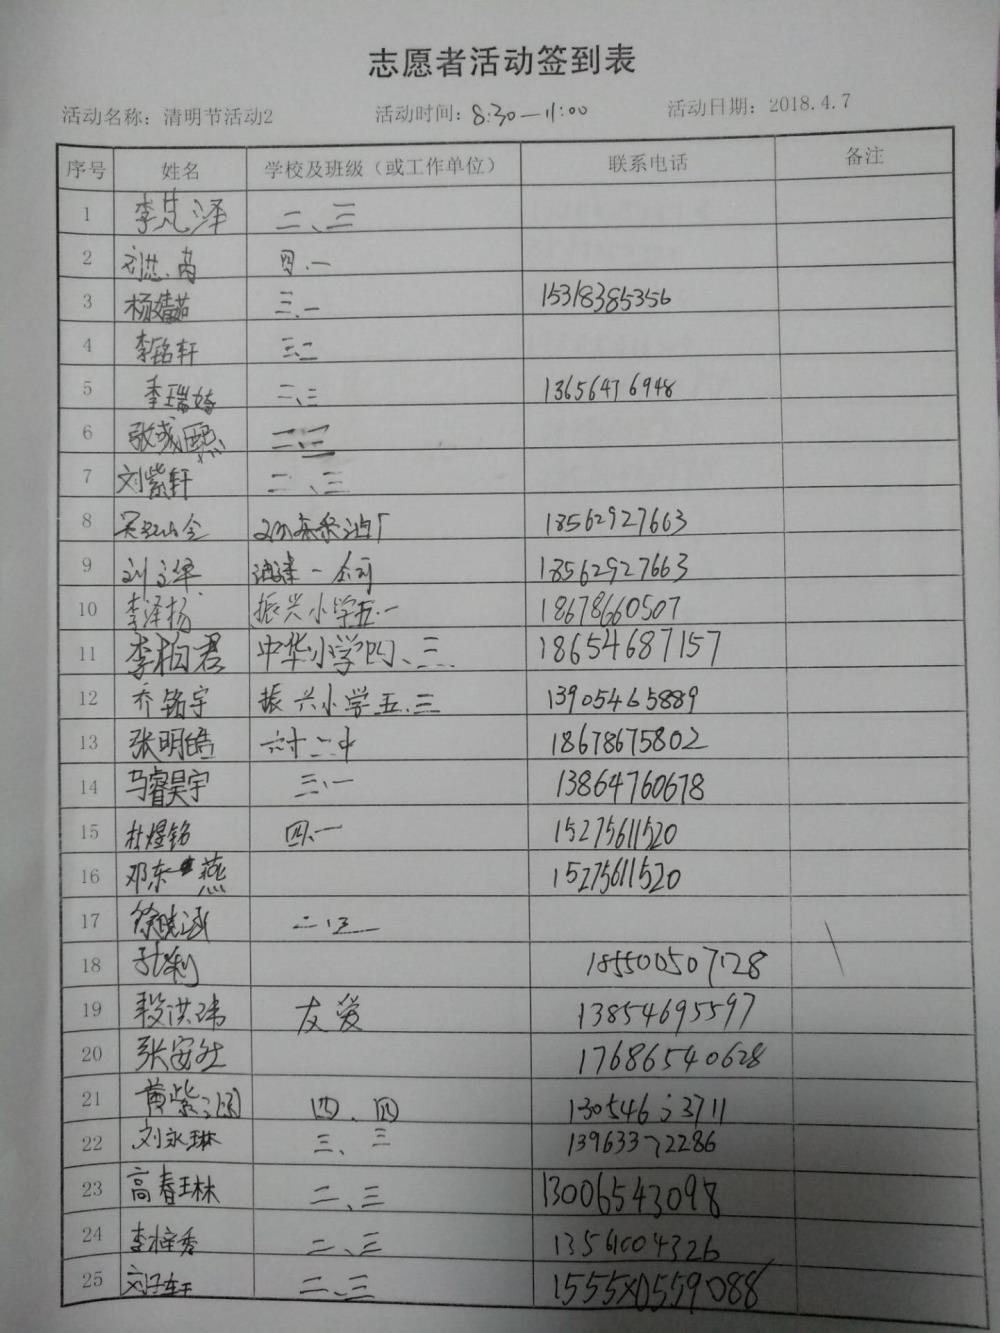 志愿者活动签到表
活动名称：清明节活动2 活动时间：8:30—11:00 活动日期：2018.4.7
序号 姓名 学校及班级（或工作单位） 联系电话 备注
1 李芃泽 二、三
2 四.一
3 杨婧茹 三.一 15318385356
4 李铭轩 三.二
5 李瑞婧 二、三 13656476948
6 张彧熙 二、三
7 刘紫轩 二、三
8 18562927663
9 刘立华 18562927663
10 李泽杨 振兴小学五.一 18678660507
11 李柏君 中华小学四、三 18654687157
12 乔铭宇 振兴小学五.三 13905465889
13 张明皓 18678675802
14 马睿昊宇 三.一 13864760678
15 杜煜铭 四.一 15275611520
16 邓东燕 15275611520
17 徐晓涵 二.三
18 孙利 185500507128
19 段洪玮 友爱 13854695597
20 张安然 17686540628
21 黄紫涵 四、四
22 刘永琳 三、三 13963372286
23 高春琳 二、三 13006543098
24 李梓秀 二、三 13561004326
25 刘子轩 二、三